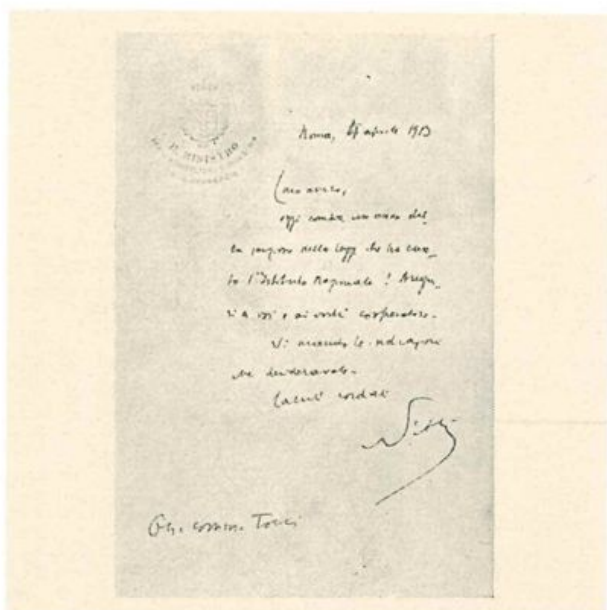 IL MINISTRO
Roma, aprile 1913
Caro amico,
oggi compie un anno dal
la della legge che ha crea_
to l'Istituto Nazionale! Augu_
ri a voi e ai vostri cooperatori.
Vi le indicazioni
che desideravate.
Saluti cordiali
Nitti